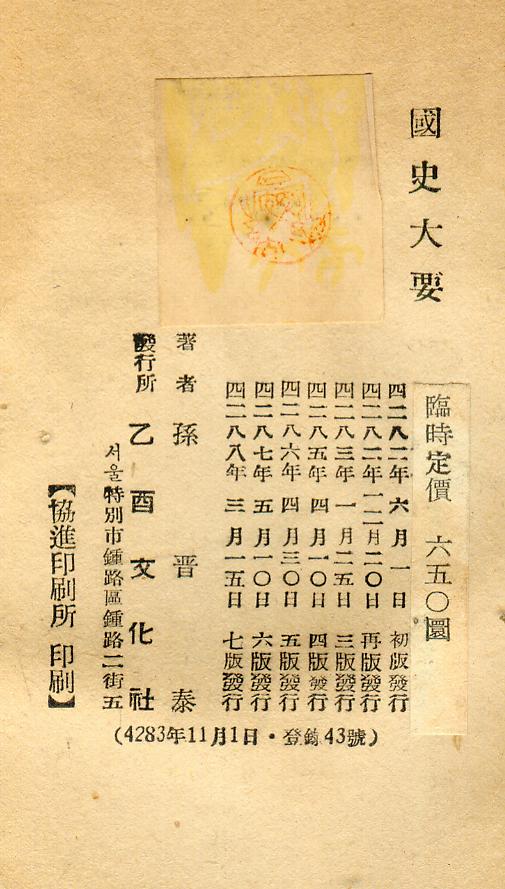 國史大要
臨時定價 六五〇圜
四二八二年 六月 一日 初版發行
四二八二年一二月二〇日 再版發行
四二八三年 一月二五日 三版發行
四二八五年 四月一〇日 四版發行
四二八六年 四月三〇日 五版發行
四二八七年 五月一〇日 六版發行
四二八八年 三月一五日 七版發行
著者 孫晋泰
發行所 乙酉文化社
서울特別市鍾路區鍾路二街五
【協進印刷所 印刷】
(4283年11月1日・登錄43號)